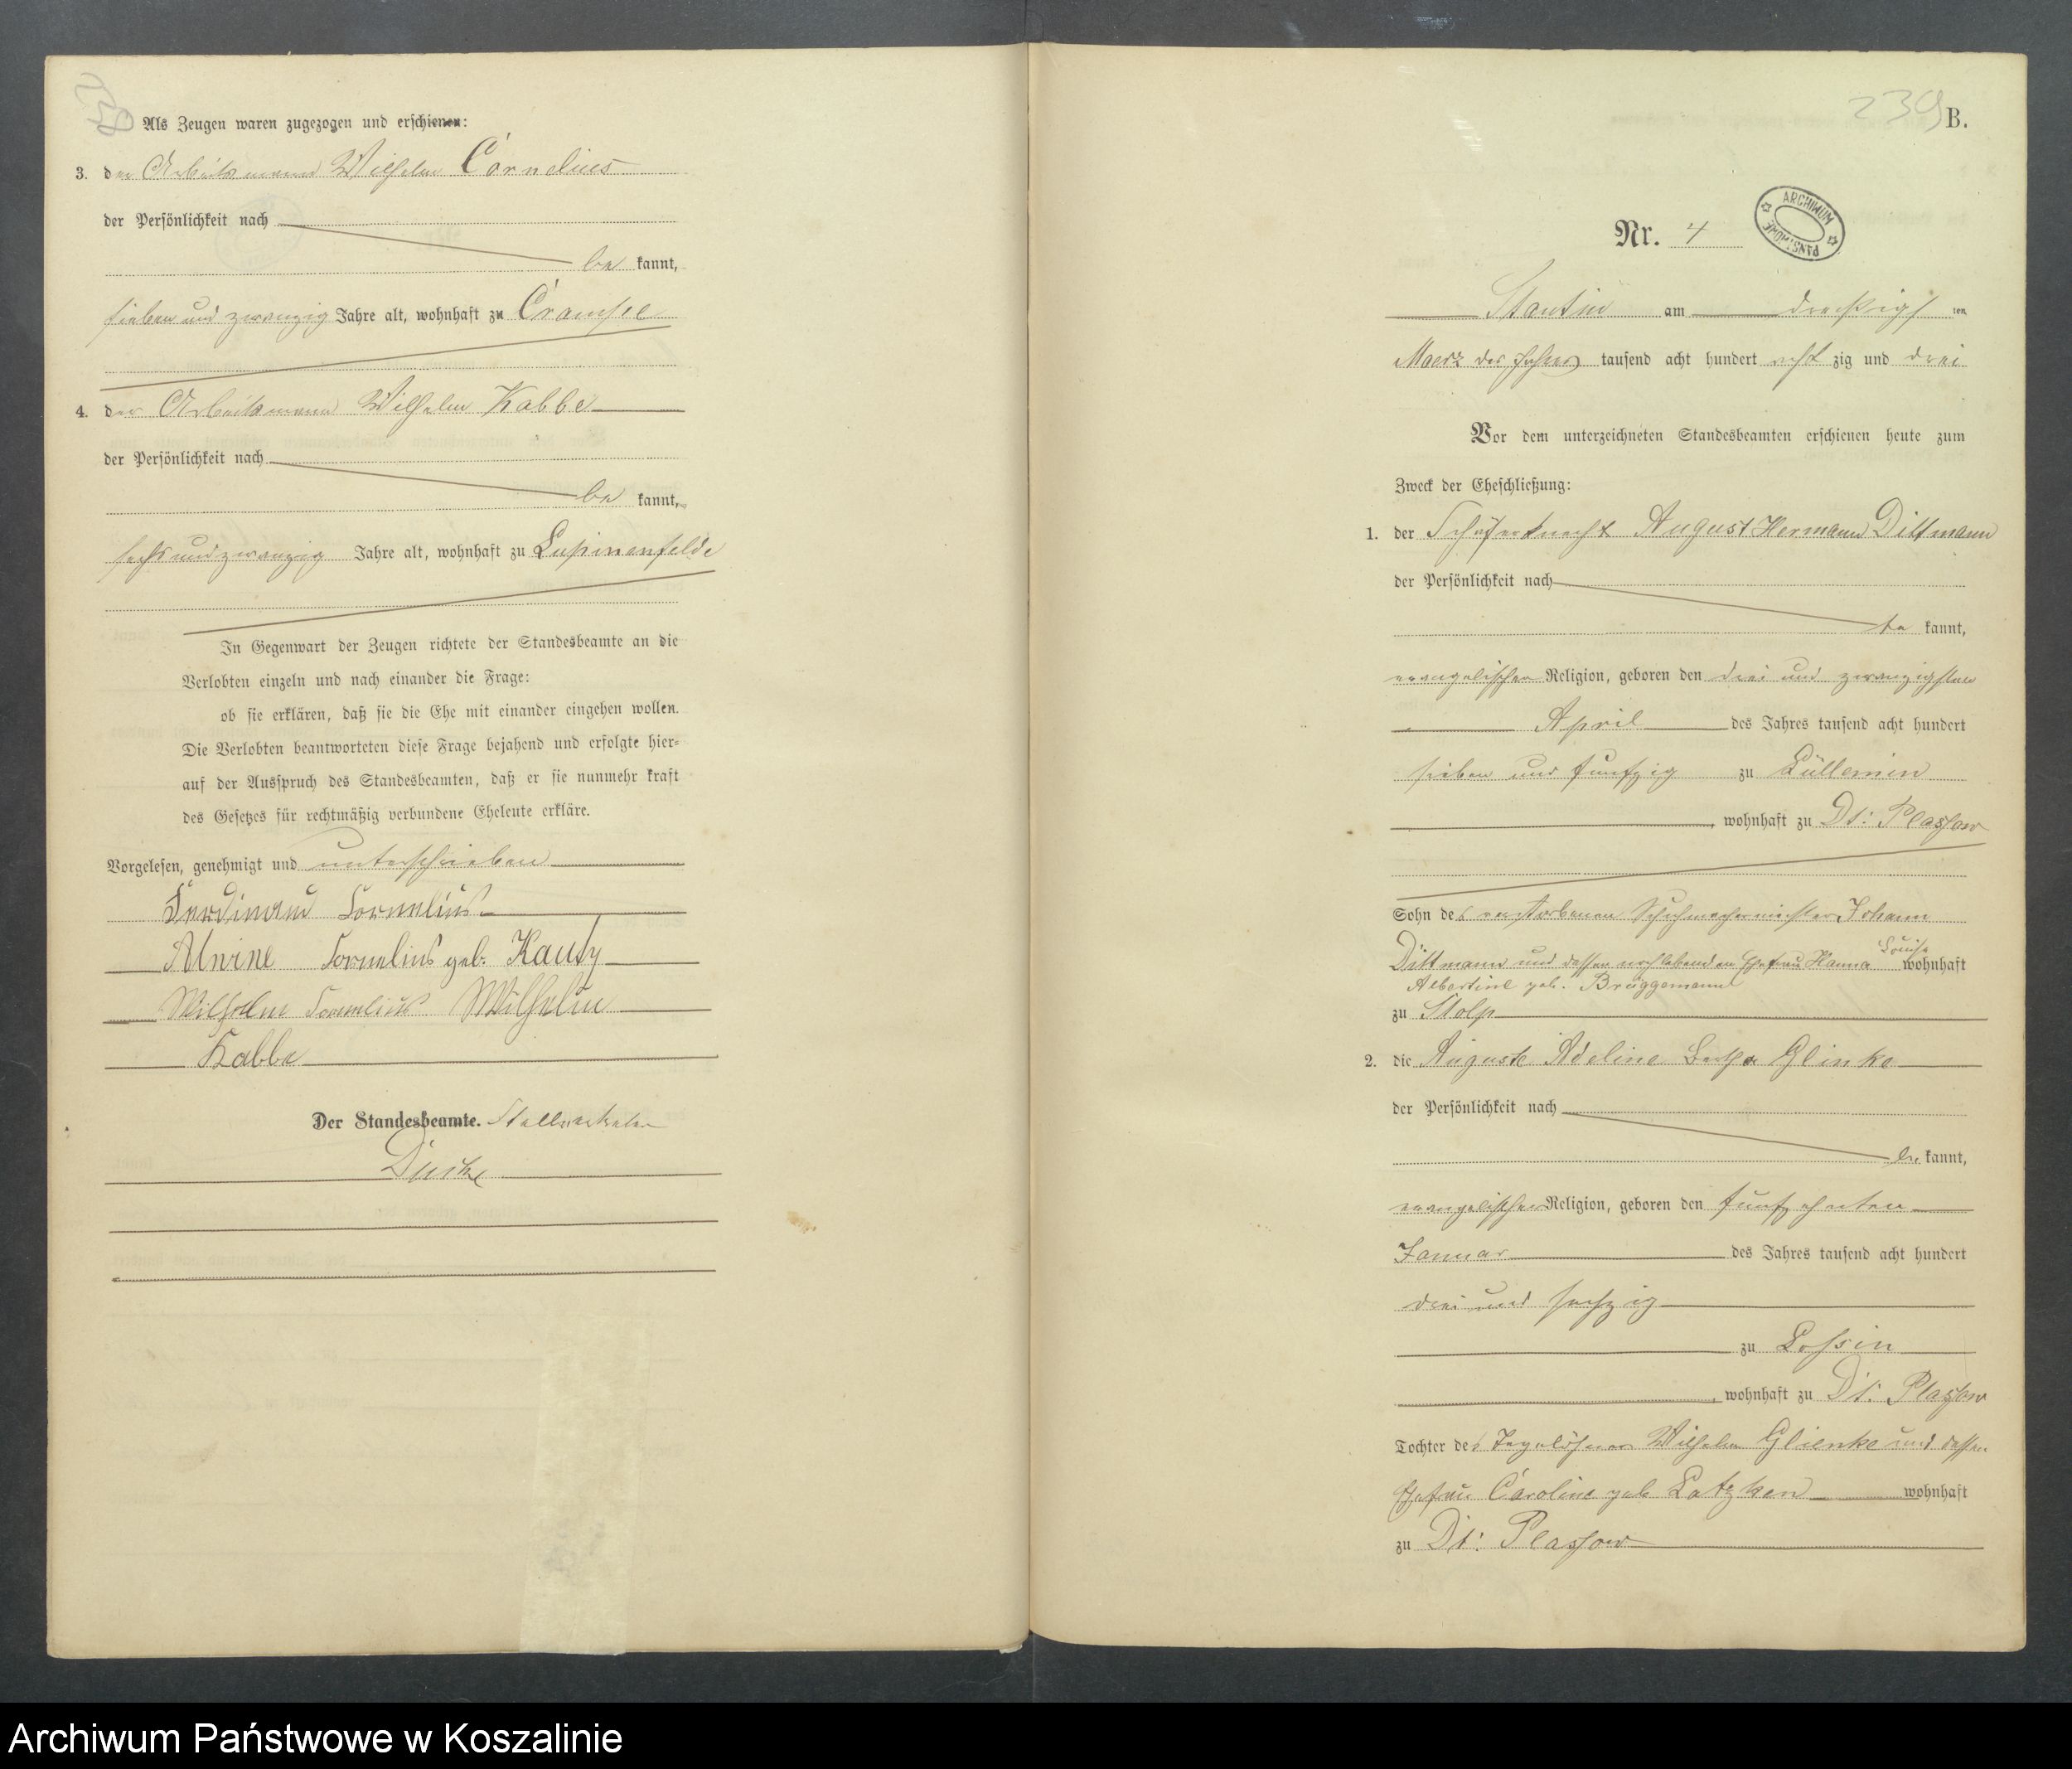 Als Zeugen waren zugezogen und erschienen:
3. der Arbeitsmann Wilhelm Cornelius
der Persönlichkeit nach
be kannt,
sieben und zwanzig Jahre alt, wohnhaft zu Cramsee
4. der Arbeitsmann Wilhelm Kabbe
der Persönlichkeit nach
be kannt,
sechs und zwanzig Jahre alt, wohnhaft zu Lupinenfelde
In Gegenwart der Zeugen richtete der Standesbeamte an die
Verlobten einzeln und nach einander die Frage:
ob sie erklären, daß sie die Ehe mit einander eingehen wollen.
Die Verlobten beantworteten diese Frage bejahend und erfolgte hier-
auf der Ausspruch des Standesbeamten, daß er sie nunmehr kraft
des Gesetzes für rechtmäßig verbundene Eheleute erkläre.
Vorgelesen, genehmigt und unterschrieben
Ferdinand Cornelius
Alwine Cornelius geb.
Wilhelm Cornelius Wilhelm
Kabbe
Der Standesbeamte.
239 B.
Nr. 4
ARCHIWUM PAŃSTWOWE
Stantin am dreißigs ten
Maerz des Jahres tausend acht hundert acht zig und drei
Vor dem unterzeichneten Standesbeamten erschienen heute zum
Zweck der Eheschließung:
1. der Schäferknecht August Hermann Dittmann
der Persönlichkeit nach
be kannt,
evangelischer Religion, geboren den drei und zwanzigsten
April des Jahres tausend acht hundert
sieben und funfzig zu Lüllemin
, wohnhaft zu Dt: Plassow
Sohn des verstorbenen Schuhmachermeister Johann
Dittmann und dessen noch lebenden Ehefrau Hanna Louise wohnhaft
Albertine geb. Brüggemann
zu Stolp
2. die Auguste Adeline Bertha Glinke
der Persönlichkeit nach
be kannt,
evangelischer Religion, geboren den funfzehnten
Januar des Jahres tausend acht hundert
drei und sechzig
zu Lossin
, wohnhaft zu Dt: Plassow
Tochter des Tagelöhner Wilhelm Glienke und dessen
Ehefrau Caroline geb Latzken wohnhaft
zu Dt: Plassow
Archiwum Państwowe w Koszalinie